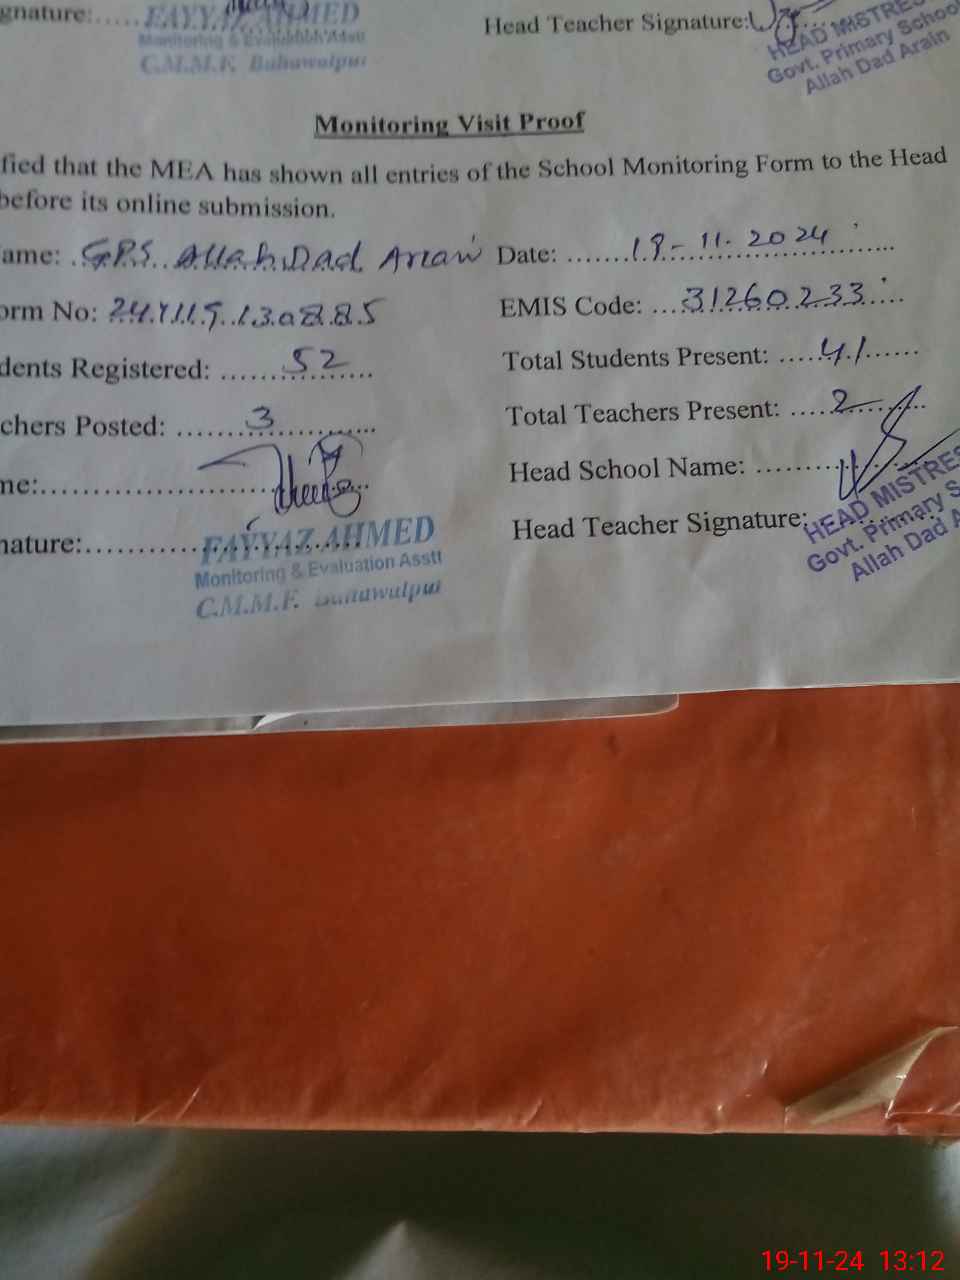 gnature:..... FAYYAZ AHMED
Monitoring & Evaluation Asstt
C.M.M.F. Bahawalpur
Head Teacher Signature:
HEAD MISTRES
Govt. Primary School
Allah Dad Arain
Monitoring Visit Proof
fied that the MEA has shown all entries of the School Monitoring Form to the Head
before its online submission.
ame: GPS Allah Dad Arain Date: 19-11-2024
orm No: EMIS Code: 31260233
dents Registered: 52 Total Students Present: 41
chers Posted: 3 Total Teachers Present: 2
me: Head School Name:
nature: Head Teacher Signature:
FAYYAZ AHMED
Monitoring & Evaluation Asstt
C.M.M.F. Bahawalpur
HEAD MISTRES
Govt. Primary S
Allah Dad A
19-11-24 13:12